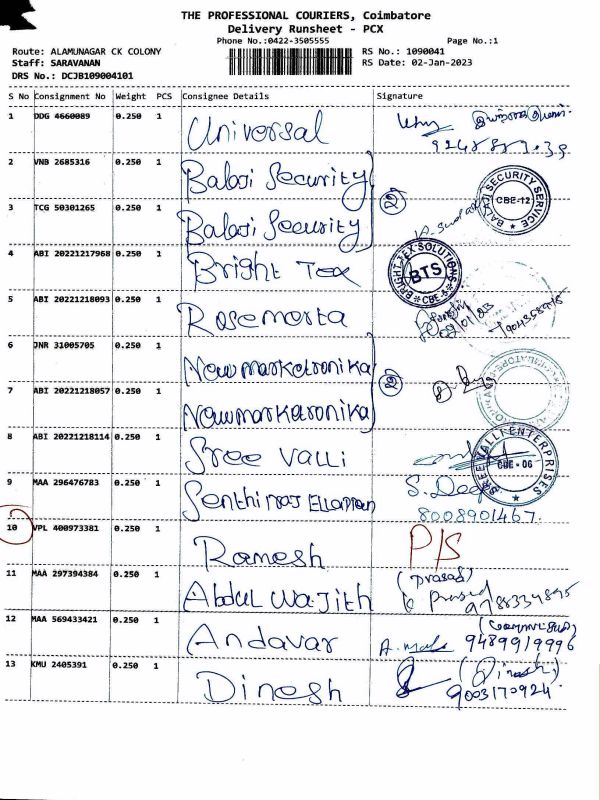 THE PROFESSIONAL COURIERS, Coimbatore
Delivery Runsheet - PCX
Phone No.:0422-3505555
Page No.:1
Route: ALAMUNAGAR CK COLONY
RS No.: 1090041
Staff: SARAVANAN
RS Date: 02-Jan-2023
DRS No.: DCJB109004101
S No Consignment No Weight PCS Consignee Details Signature
1 DDG 4660089 0.250 1 Universal
2 VNB 2685316 0.250 1 Balaji Security
BALAJI SECURITY SERVICE CBE-12
3 TCG 50301265 0.250 1 Balaji Security
4 ABI 20221217968 0.250 1 Bright Tex
BRIGHT TEX SOLUTIONS BTS CBE-6
5 ABI 20221218093 0.250 1 Rosemerta
02/01/23
6 JNR 31005705 0.250 1 Newmarketronika
7 ABI 20221218057 0.250 1 Newmarketronika
8 ABI 20221218114 0.250 1 Sree Valli
SREE VALLI ENTERPRISES CBE - 06
9 MAA 296476783 0.250 1
8008901467.
10 VPL 400973381 0.250 1 Ramesh P/S
11 MAA 297394384 0.250 1 Abdul Wajith (Prasad)
12 MAA 569433421 0.250 1 Andavar
9489919996
13 KMU 2405391 0.250 1 Dinesh (Dinesh)
9003170924